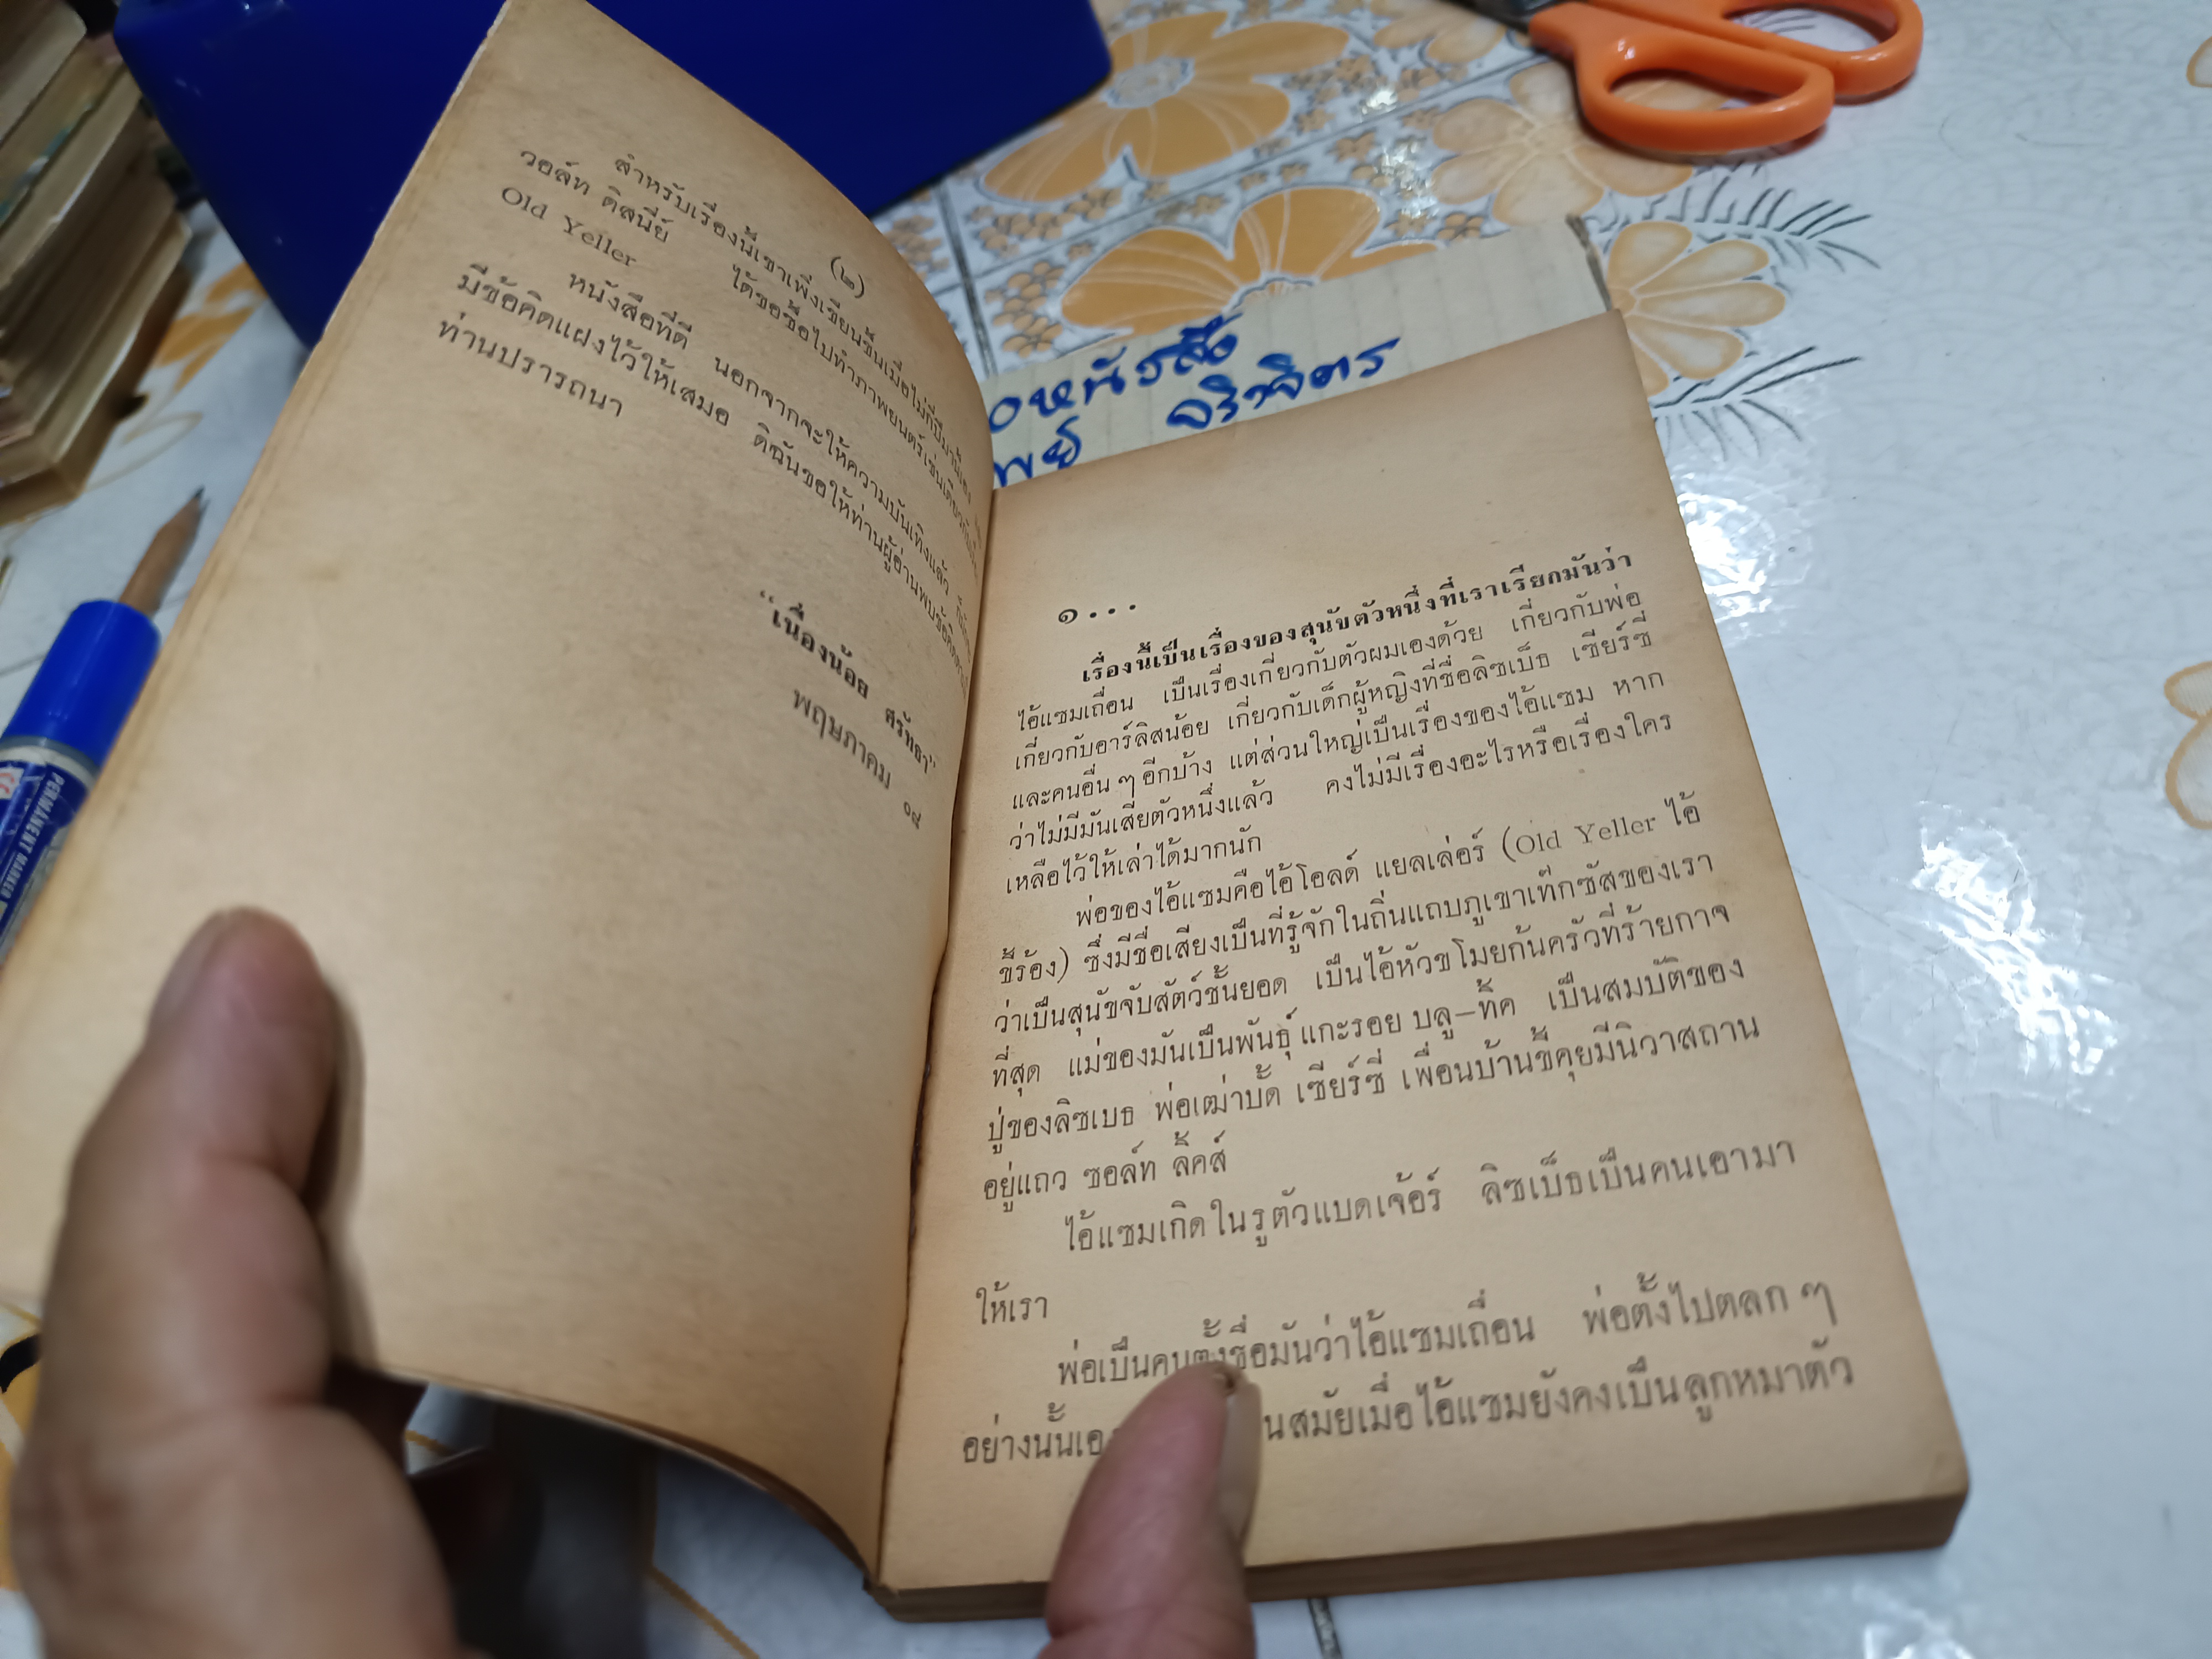 (๒)
สำหรับเรื่องนี้เขาเพิ่งเขียนขึ้นเมื่อไม่กี่ปีมานี้เอง
วอล์ท ดิสนี่ย์ ได้ขอซื้อไปทำภาพยนตร์เช่นเดียวกับเรื่อง
Old Yeller
หนังสือที่ดี นอกจากจะให้ความบันเทิงแล้ว
มีข้อคิดแฝงไว้ให้เสมอ ดิฉันขอให้ท่านผู้อ่านพบข้อคิดตามที่
ท่านปรารถนา
“เนื่องน้อย ศรัทธา”
พฤษภาคม ๐๘
๑...
เรื่องนี้เป็นเรื่องของสุนัขตัวหนึ่งที่เราเรียกมันว่า
ไอ้แซมเถื่อน เป็นเรื่องเกี่ยวกับตัวผมเองด้วย เกี่ยวกับพ่อ
เกี่ยวกับอาร์ลิสน้อย เกี่ยวกับเด็กผู้หญิงที่ชื่อลิซเบ็ธ เซียร์ซี่
และคนอื่น ๆ อีกบ้าง แต่ส่วนใหญ่เป็นเรื่องของไอ้แซม หาก
ว่าไม่มีมันเสียตัวหนึ่งแล้ว คงไม่มีเรื่องอะไรหรือเรื่องใคร
เหลือไว้ให้เล่าได้มากนัก
พ่อของไอ้แซมคือไอ้โอลด์ แยลเล่อร์ (Old Yeller ไอ้
ขี้ร้อง) ซึ่งมีชื่อเสียงเป็นที่รู้จักในถิ่นแถบภูเขาเท๊กซัสของเรา
ว่าเป็นสุนัขจับสัตว์ชั้นยอด เป็นไอ้หัวขโมยก้นครัวที่ร้ายกาจ
ที่สุด แม่ของมันเป็นพันธุ์แกะรอย บลู–ทิ้ค เป็นสมบัติของ
ปู่ของลิซเบธ พ่อเฒ่าบั้ด เซียร์ซี่ เพื่อนบ้านขี้คุยมีนิวาสถาน
อยู่แถว ซอล์ท ลิ้คส์
ไอ้แซมเกิดในรูตัวแบดเจ้อร์ ลิซเบ็ธเป็นคนเอามา
ให้เรา
พ่อเป็นคนตั้งชื่อมันว่าไอ้แซมเถื่อน พ่อตั้งไปตลก ๆ
อย่างนั้นเอง นสมัยเมื่อไอ้แซมยังคงเป็นลูกหมาตัว
PERMANENT MARKER